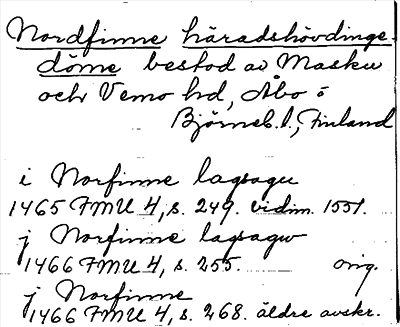 Nordfinne häradshövdinge-
döme bestod av Masku
och Vemo hd, Åbo o
Björneb. l., Finland
i Norfinne lagsagu
1465 FMU 4, s. 249. vidim. 1551.
j Norfinne lagsagw
1466 FMU 4, s. 255. orig.
j Norfinne
1466 FMU 4, s. 268. äldre avskr.